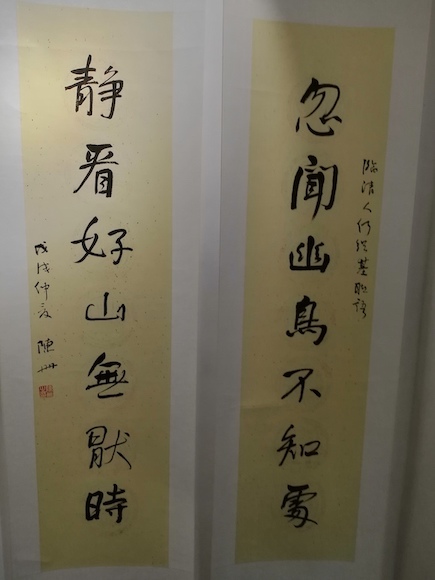 忽聞幽鳥不知處
臨清人何紹基聯語
静看好山無猒時
戊戌仲夏 陳